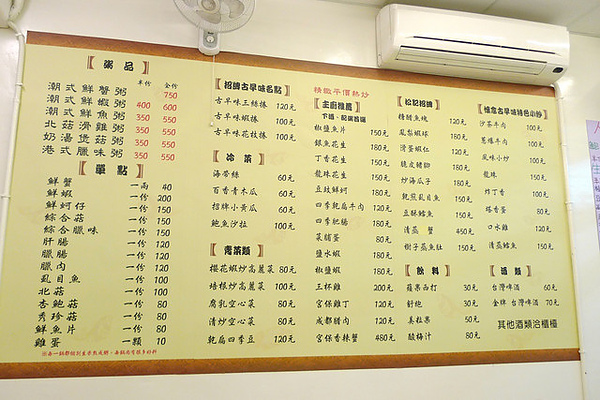 【粥品】
半份 全份
潮式鮮蟹粥 750
潮式鮮蝦粥 400 600
潮式鮮魚粥 350 550
北菇滑雞粥 350 550
奶湯煲菇粥 350 550
港式臘味粥 350 550
【單點】
鮮蟹 一兩 40
鮮蝦 一份 200
鮮蚵仔 一份 150
綜合菇 一份 150
綜合臘味 一份 150
肝腸 一份 120
臘腸 一份 120
臘肉 一份 120
虱目魚 一份 120
北菇 一份 100
杏鮑菇 一份 80
秀珍菇 一份 80
鮮魚片 一份 80
雞蛋 一顆 10
【招牌古早味名點】
古早味三絲捲 120元
古早味蝦捲 100元
古早味花枝捲 100元
【冷菜】
海帶絲 60元
百香青木瓜 60元
招牌小黃瓜 60元
鮑魚沙拉 100元
【青菜類】
櫻花蝦炒高麗菜 80元
培根炒高麗菜 100元
腐乳空心菜 80元
清炒空心菜 80元
乾扁四季豆 120元
精緻平價熱炒
【主廚推薦】
下酒、配飯首選
椒鹽魚片 150元
銀魚花生 180元
丁香花生 150元
龍珠花生 150元
豆豉鮮蚵 180元
四季乾扁牛肉 120元
四季肥腸 180元
菜脯蛋 80元
鹽水蝦 180元
椒鹽蝦 180元
三杯雞 200元
宮保雞丁 120元
成都臘肉 120元
宮保香辣蟹 480元
【松記招牌】
精緻魚塊 120元
鳳梨蝦球 180元
滑蛋蝦仁 180元
脆皮豬腳 180元
炒海瓜子 180元
乾煎虱目魚 150元
豆酥鱈魚 150元
清蒸蟹 450元
樹子蒸魚肚 150元
【飲料】
蘋果西打 30元
舒跑 30元
美粒果 50元
酸梅汁 80元
沙茶牛肉 100元
蔥爆牛肉 100元
風味小炒 100元
龍珠 150元
炸丁香 100元
塔香蛋 80元
口水雞 120元
清蒸鱈魚 150元
【酒類】
台灣啤酒 60元
金牌 台灣啤酒 70元
其他酒類洽櫃檯